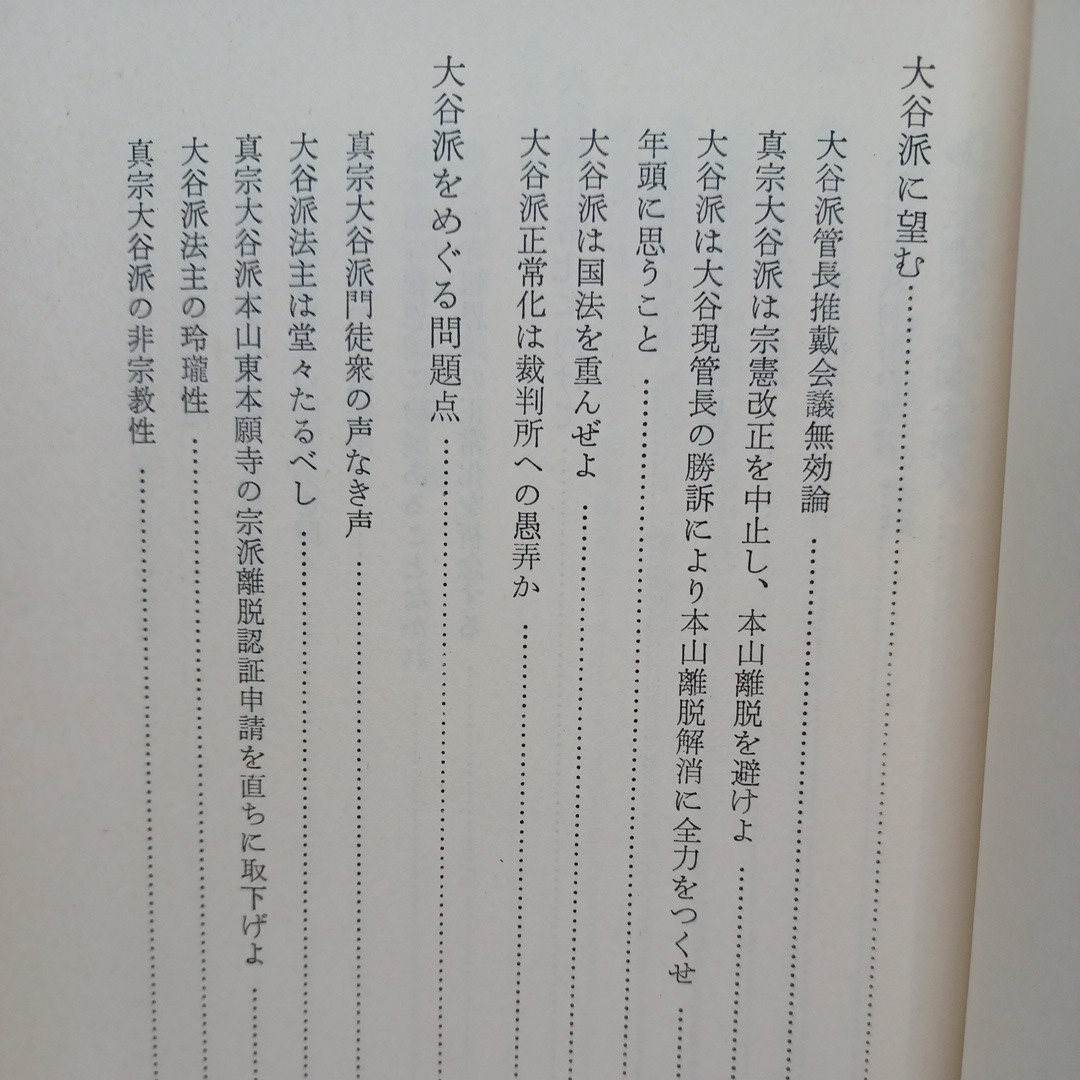 大谷派に望む
大谷派管長推戴会議無効論
真宗大谷派は宗憲改正を中止し、本山離脱を避けよ
大谷派は大谷現管長の勝訴により本山離脱解消に全力をつくせ
年頭に思うこと
大谷派は国法を重んぜよ
大谷派正常化は裁判所への愚弄か
大谷派をめぐる問題点
真宗大谷派門徒衆の声なき声
大谷派法主は堂々たるべし
真宗大谷派本山東本願寺の宗派離脱認証申請を直ちに取下げよ
大谷派法主の玲瓏性
真宗大谷派の非宗教性